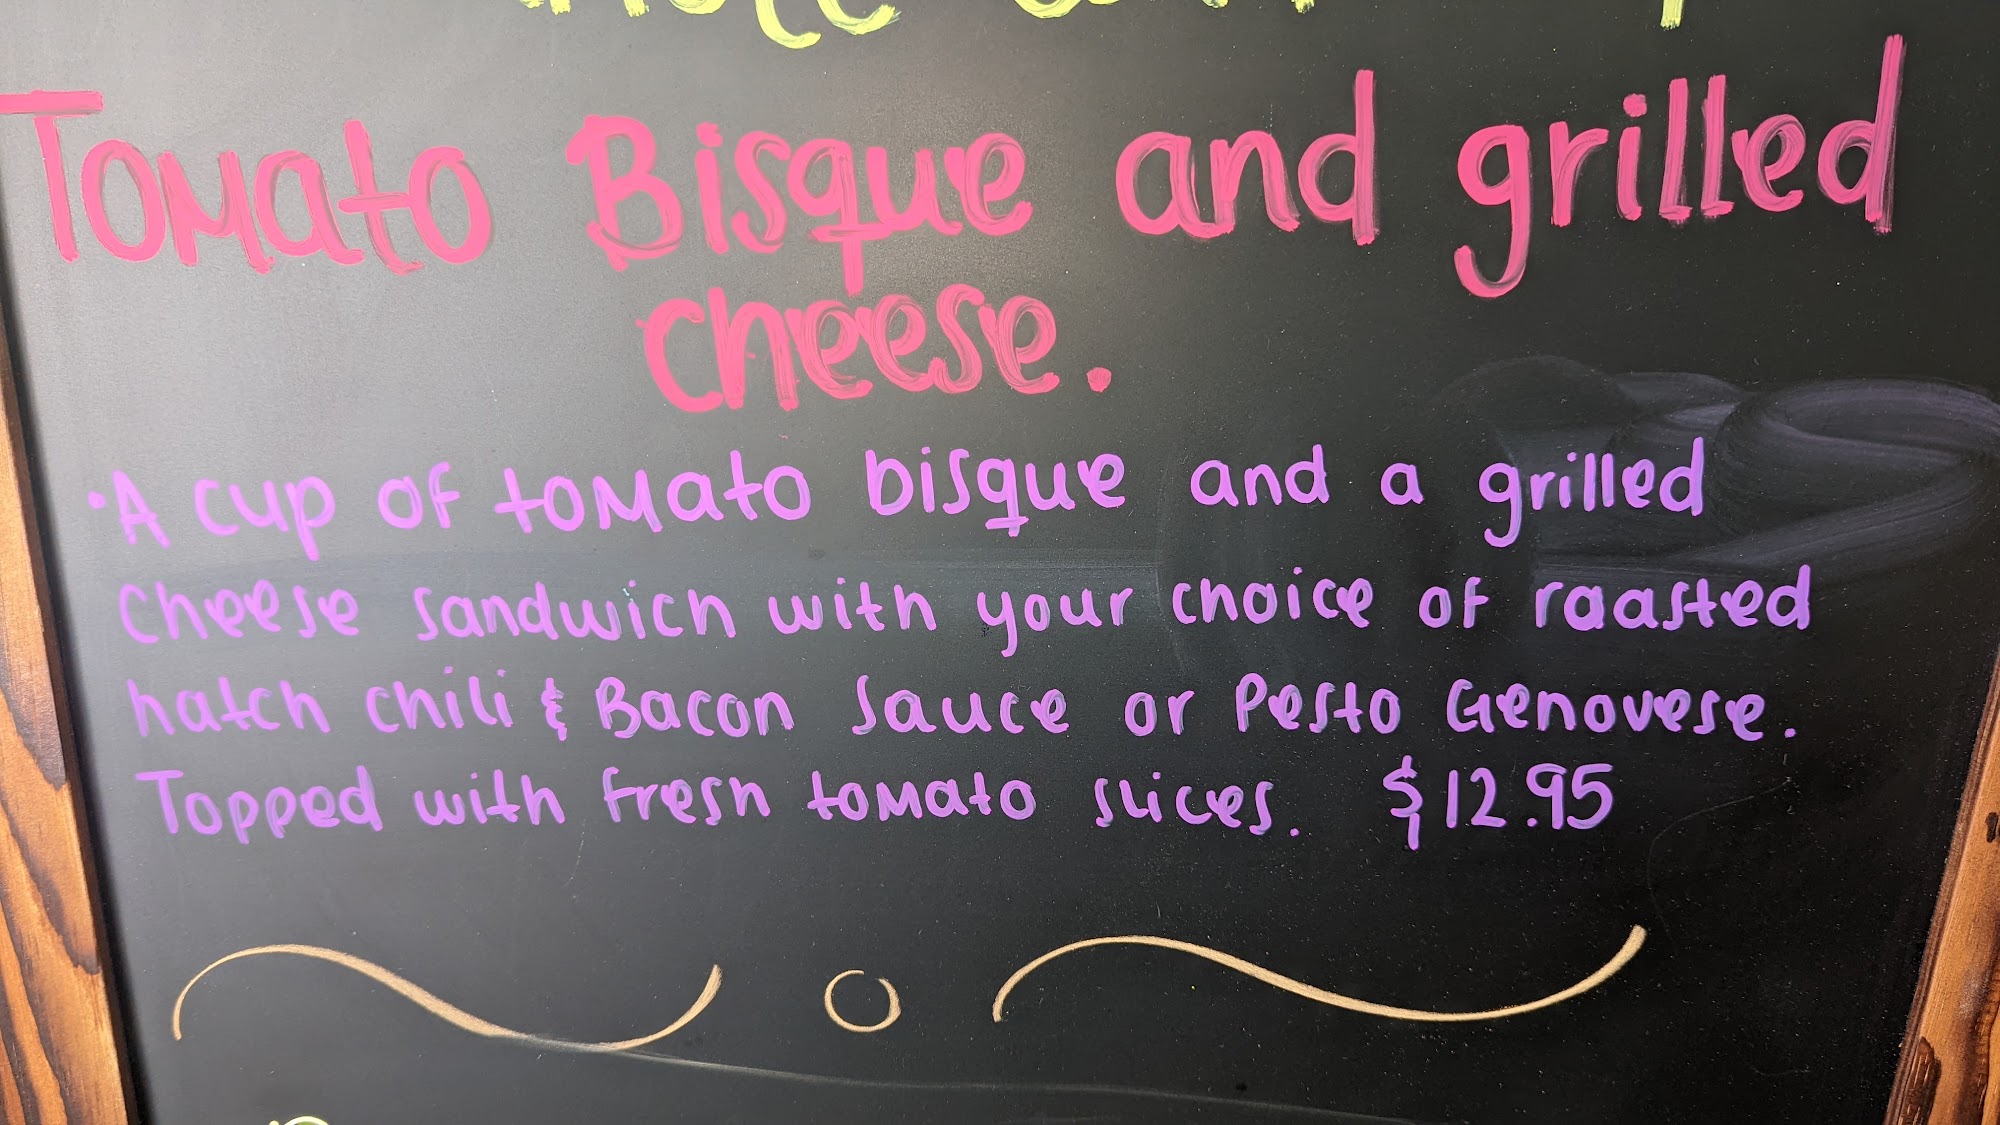 Tomato Bisque and grilled
cheese.
· A cup of tomato bisque and a grilled
cheese sandwich with your choice of roasted
hatch chili & Bacon Sauce or Pesto Genovese.
Topped with fresh tomato slices. $12.95